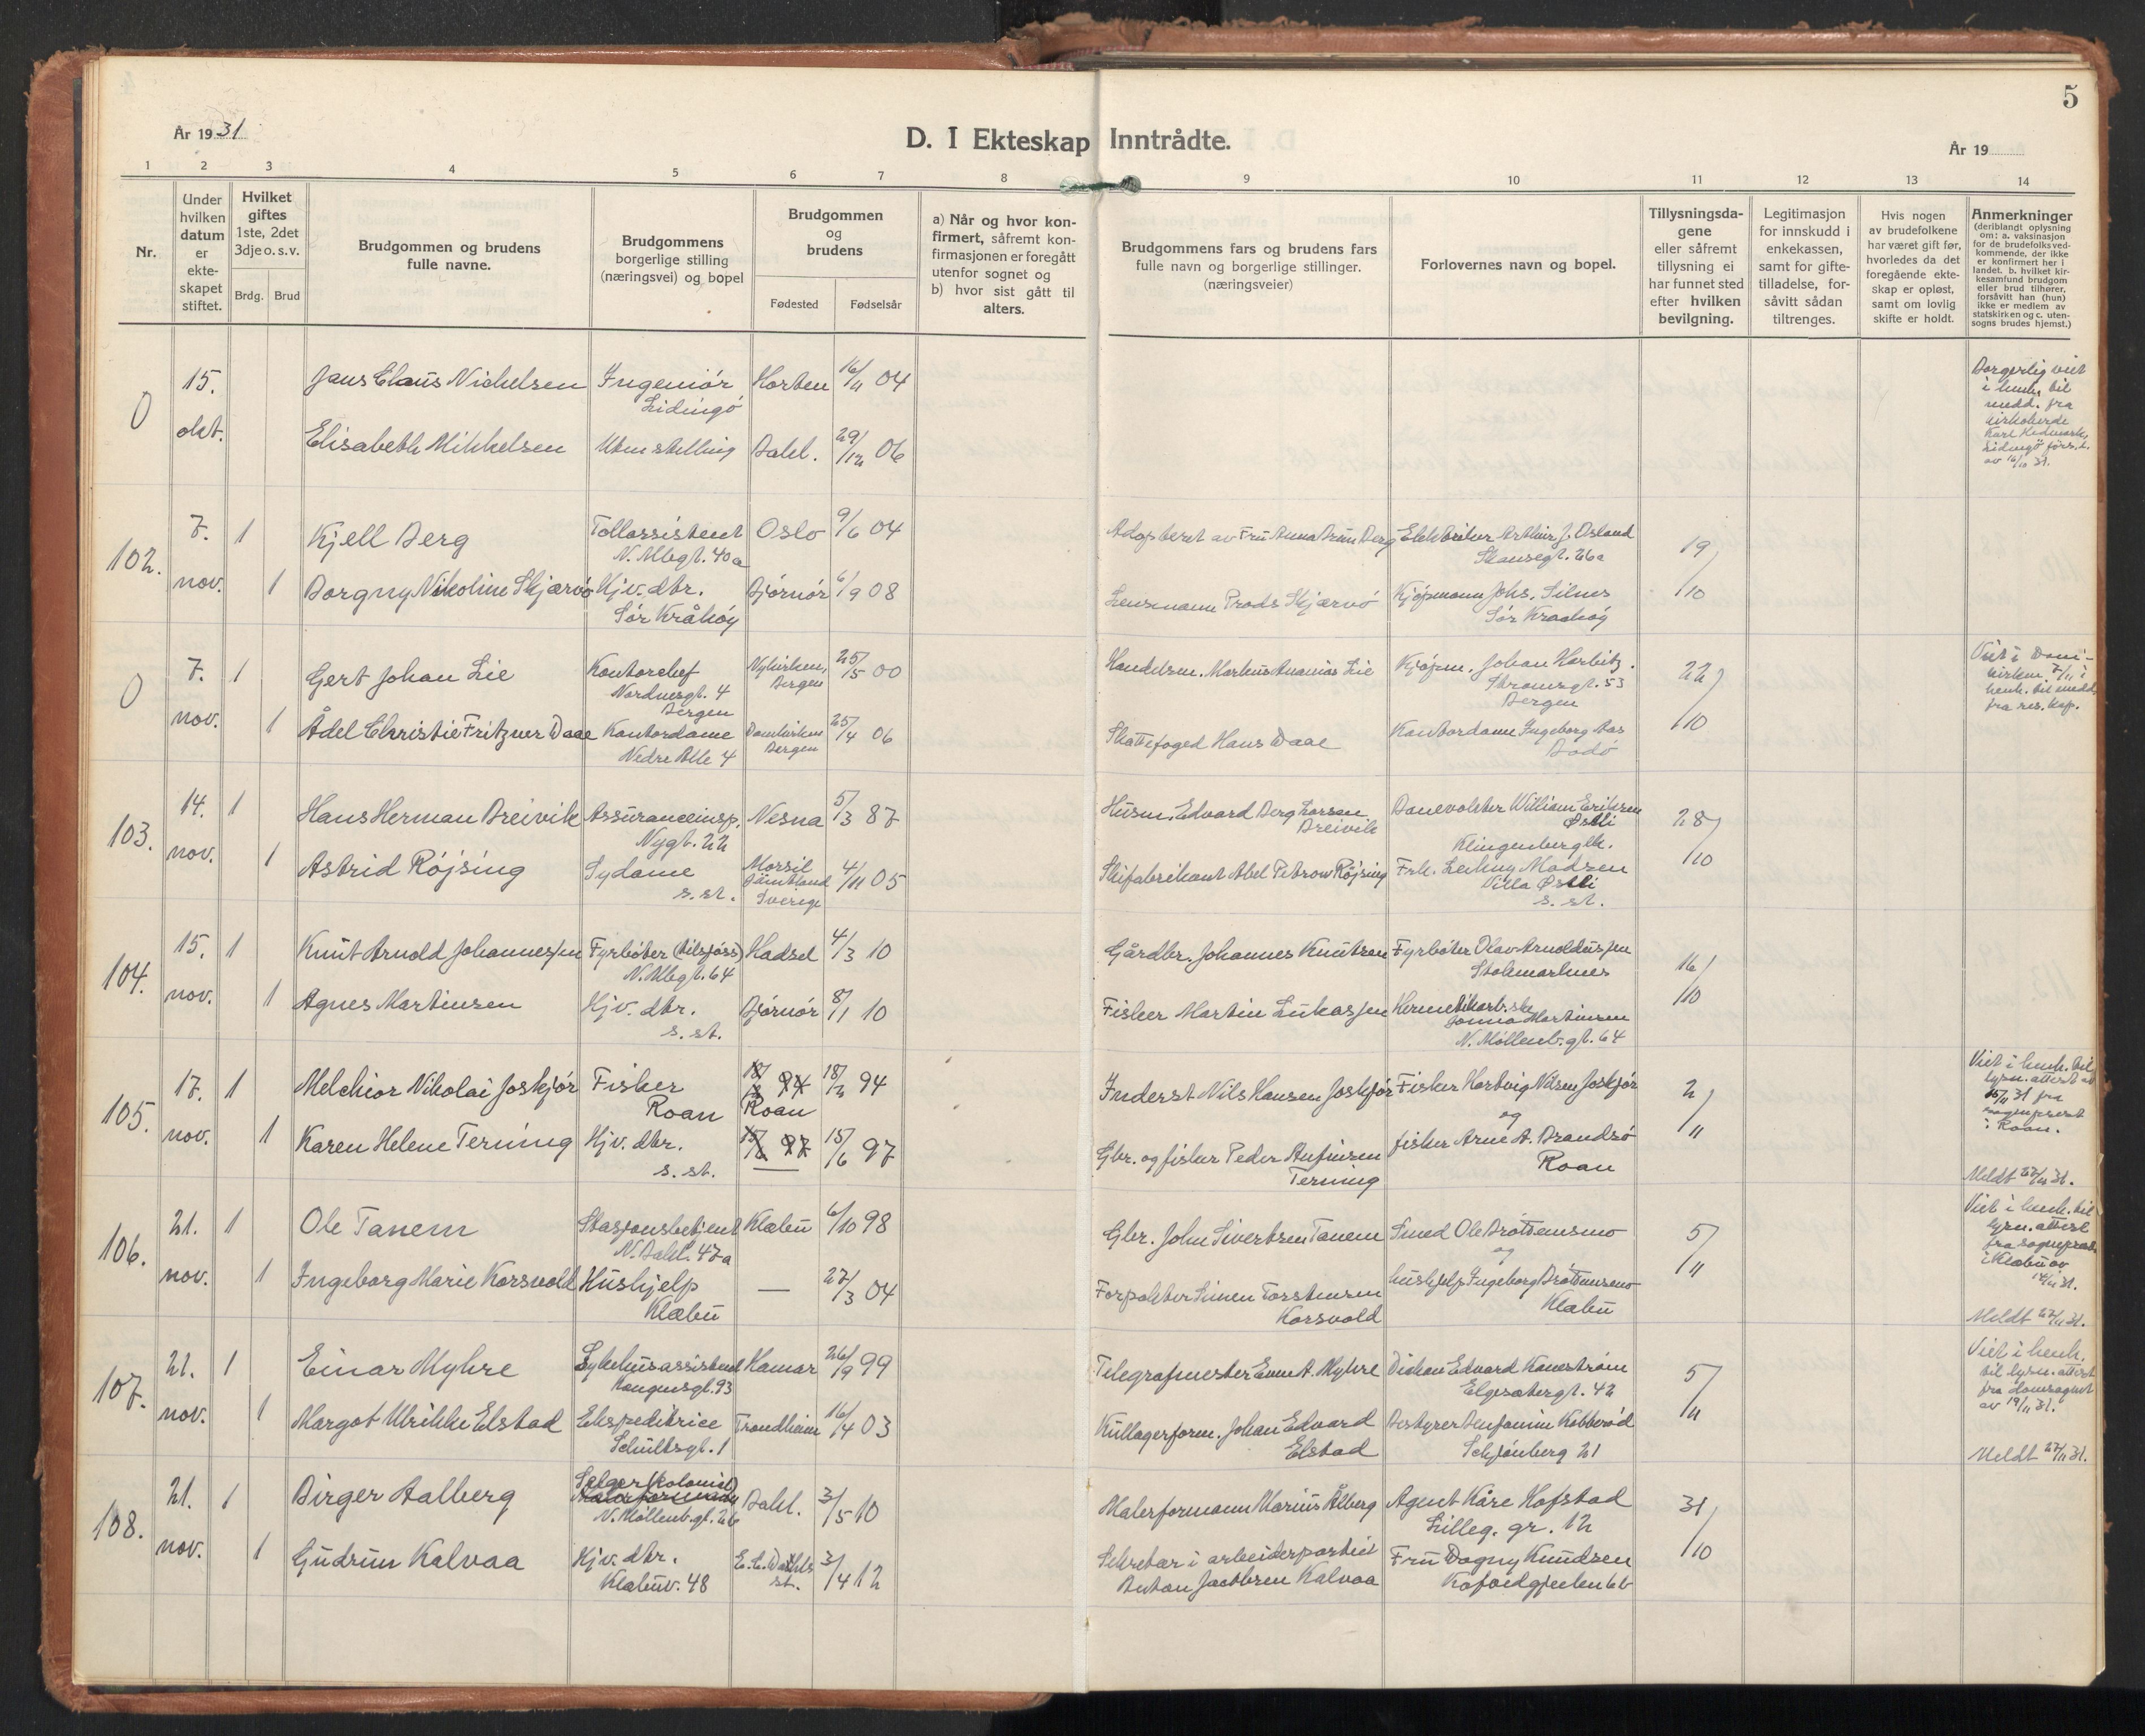 5
År 1931
D. I Ekteskap Inntrådte.
År 19
1 2 3 4 5 6 7 8 9 10 11 12 13 14
Nr.
Under
hvilken
datum
er
ekte-
skapet
stiftet.
Hvilket
giftes
1ste, 2det
3dje o. s. v.
Brdg. Brud
Brudgommen og brudens
fulle navne.
Brudgommens
borgerlige stilling
(næringsvei) og bopel
Brudgommen
og
brudens
Fødested Fødselsår
a) Når og hvor kon-
firmert, såfremt kon-
firmasjonen er foregått
utenfor sognet og
b) hvor sist gått til
alters.
Brudgommens fars og brudens fars
fulle navn og borgerlige stillinger.
(næringsveier)
Forlovernes navn og bopel.
Tillysningsda-
gene
eller såfremt
tillysning ei
har funnet sted
efter hvilken
bevilgning.
Legitimasjon
for innskudd i
enkekassen,
samt for gifte-
tilladelse, for-
såvitt sådan
tiltrenges.
Hvis nogen
av brudefolkene
har været gift før,
hvorledes da det
foregående ekte-
skap er opløst,
samt om lovlig
skifte er holdt.
Anmerkninger
(deriblandt oplysning
om: a. vaksinasjon
for de brudefolks ved-
kommende, der ikke
er konfirmert her i
landet. b. hvilket kir-
kesamfund brudgom
eller brud tilhører,
forsåvitt han (hun)
ikke er medlem av
statskirken og c. uten-
sogns brudes hjemst.)
0
15. okt.
Jans Claus Nickelsen
Ingeniør
Lidingö
Horten 16/11 04
Elisabeth Mikkelsen
Uten stilling
Bakl. 29/12 06
Borgerlig viet
i henh. til
medd. fra
kirkoherde
Lidingö förs.
av 16/10 31.
102.
7. nov.
1 Kjell Berg
Tollassistent
N. Mbgt. 40a
Oslo 9/6 04
Adoptert av Fru Anna Bruun Berg
Elektriker Arthur J. Osland
Skansegt. 26a
19/10
1 Borgny Nikoline Skjærvø
Hjv. dtr.
Sør Kråkøy
Bjørnør 6/9 08
Lensmann Prods Skjærvø
Kjøpmann Johs. Silnes
Sør Kraakøy
0
7. nov.
1 Gert Johan Lie
Kontorchef
Nordnesgt. 4
Bergen
Nykirken,
Bergen
25/5 00
Handelsm. Markus Ananias Lie
Kjøpm. Johan Harbitz.
Stromgt. 53
Bergen
22/10
1 Ådel Christie Fritzner Daae
Kontordame
Nedre Alle 4
Domkirken
Bergen
25/4 06
Skattefoged Hans Daae
Kontordame Ingeborg Aas
Bodø
Viet i Dom-
kirken 7/11 i
henh. til medd.
fra res. kap.
103.
14. nov.
1 Hans Herman Breivik
Assuranceinsp.
Nygt. 22
Nesna 5/3 87
Husm. Edvard Berg Larsen
Breivik
Banevokter William Eriksen
Østli
Klingenberglk.
28/10
1 Astrid Röjsing
Sydame
s. st.
Morsil
Jämtland
Sverige
4/11 05
Skifabrikant Abel Petrow Röjsing
Frk. Leikny Madsen
Villa Østli
s. st.
104.
15. nov.
1 Knut Arnold Johannessen
Fyrbøter (tilsjøss)
N. Mbgt. 64
Hadsel 4/3 10
Gårdbr. Johannes Knutsen
Fyrbøter Olav Arnoldussen
Stokmarknes
16/10
1 Agnes Martinsen
Hjv. dtr.
s. st.
Bjørnør 8/1 10
Fisker Martin Lukassen
Hermetikarb.ske
Jonna Martinsen
N. Møllenb. gt. 64
105.
17. nov.
1 Melchior Nikolai Joskjør
Fisker
Roan
18/2 94
Roan
18/2 94
Inderst Nils Hansen Joskjør
Fisker Hartvig Nilsen Joskjør
og
2/11
1 Karen Helene Terning
Hjv. dtr.
s. st.
15/6 97
—
15/6 97
Gbr. og fisker Peder Anfinsen
Terning
fisker Arne A. Brandsø
Roan
Viet i henh. til
lysn. attest av
15/11 31 fra
sogneprest
i Roan.
Meldt 27/11 31.
106.
21. nov.
1 Ole Tanem
Stasjonsbetjent
N. Bakl. 47a
Klæbu 6/10 98
Gbr. John Sivertsen Tanem
Smed Ole Brøttemsmo
og
5/11
1 Ingeborg Marie Korsvold
Hushjelp
Klæbu
— 27/3 04
Forpakter Simen Torstensen
Korsvold
hushjelp Ingeborg Brøttemsmo
Klæbu
Viet i henh. til
lysn. attest
fra sogneprest
i Klæbu av
14/11 31.
Meldt 27/11 31.
107.
21. nov.
1 Einar Myhre
Sykehusassistent
Kongensgt. 93
Hamar 26/9 99
Telegrafmester Even A. Myhre
Diakon Edvard Kanestrøm
Elgesetergt. 42
5/11
1 Margot Ulrikke Elstad
Ekspeditrice
Schultsgt. 1
Trondheim 16/4 03
Kullagerform. Johan Edvard
Elstad
Bestyrer Benjamin Kobberød
Schjønberg 21
Viet i henh.
til lysn. attest
fra domsognet
av 19/11 31.
Meldt 27/11 31.
108.
21. nov.
1 Birger Aalberg
Selger (kolonial)
Malerformann
N. Møllenb. gt. 26
Bakl. 3/5 10
Malerformann Marius Ålberg
Agent Kåre Hofstad
Lilleg. gr. 12
31/10
1 Gudrun Kalvaa
Hjv. dtr.
Klæbuv. 48
E. C. Dahls
st.
3/4 12
Sekretær i arbeiderpartiet
Anton Jacobsen Kalvaa
Fru Dagny Knudsen
Kofoedgjeelen 6b